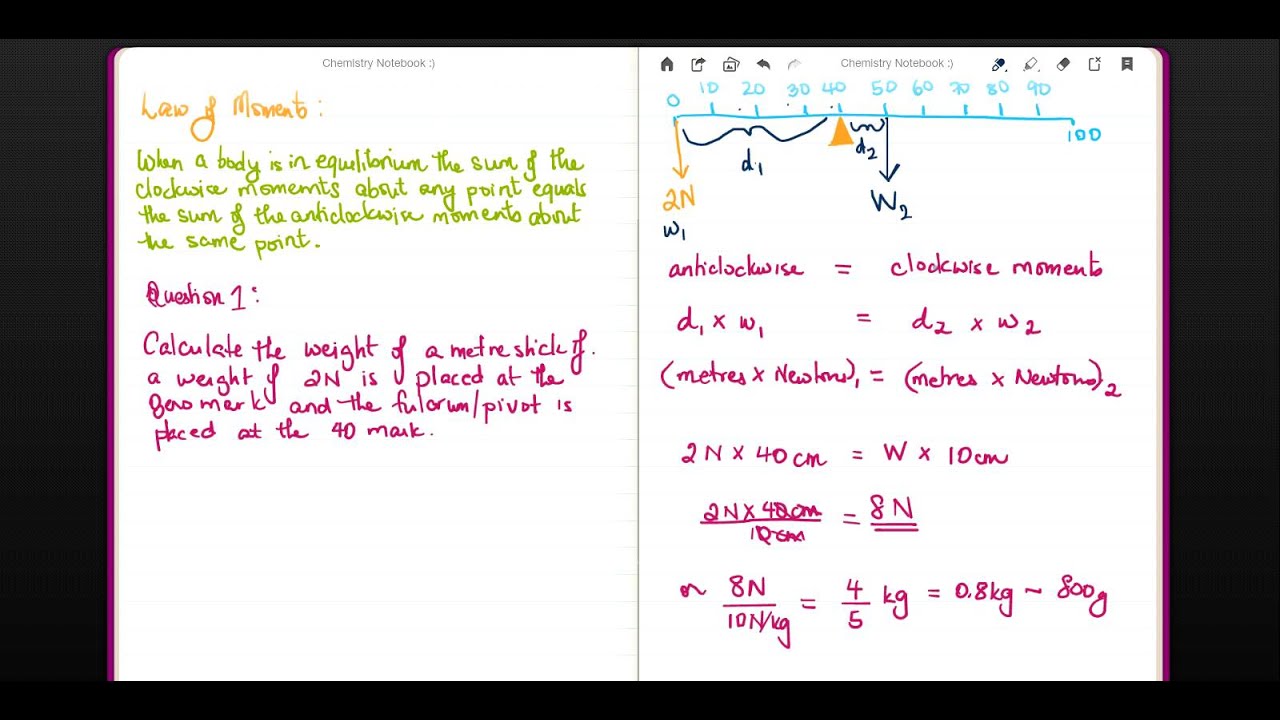 Chemistry Notebook :)
Law of Moments :
When a body is in equilibrium the sum of the
clockwise momemnts about any point equals
the sum of the anticlockwise moments about
the same point.
Question 1 :
Calculate the weight of a metre stick if.
a weight of 2N is placed at the
zero mark and the fulcrum/pivot is
placed at the 40 mark.
Chemistry Notebook :)
0 10 20 30 40 50 60 70 80 90
100
d1 d2
2N W2
w1
anticlockwise = clockwise moments
d1 x w1 = d2 x w2
(metres x Newtons)1 = (metres x Newtons)2
2N x 40cm = W x 10cm
2N x 40cm = 8N
10cm
8N = 4 kg = 0.8kg ~ 800g
10N/kg 5